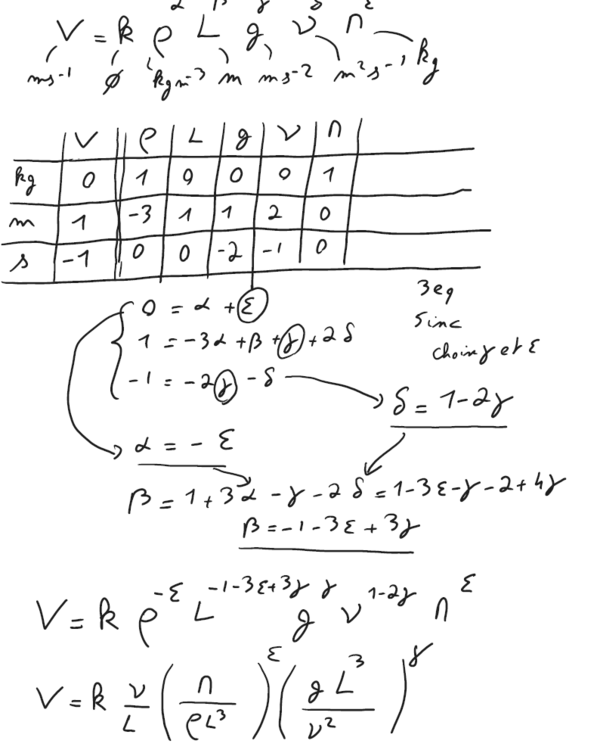 V = k ρ^α L^β g^γ ν^δ n^ε
ms⁻¹ ø kgm⁻³ m ms⁻² m²s⁻¹ kg
V ρ L g ν n
kg 0 1 0 0 0 1
m 1 -3 1 1 2 0
s -1 0 0 -2 -1 0
0 = α + ε
1 = -3α + β + γ + 2δ
-1 = -2γ - δ
3 eq
5 inc
choix γ et ε
δ = 1-2γ
α = - ε
β = 1 + 3α - γ - 2δ = 1-3ε-γ-2+4γ
β = -1-3ε+3γ
V = k ρ^-ε L^-1-3ε+3γ g^γ ν^1-2γ n^ε
V = k ν/L (n/ρL³)^ε (gL³/ν²)^γ